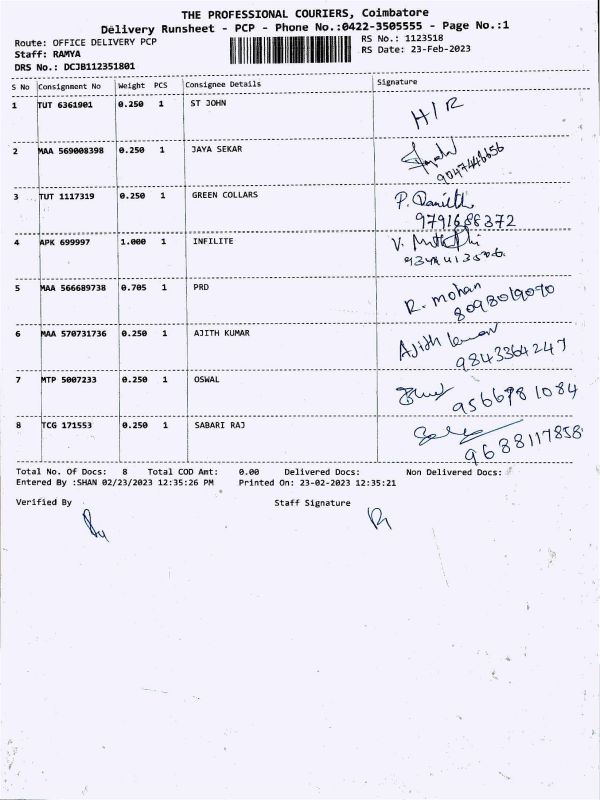 THE PROFESSIONAL COURIERS, Coimbatore
Delivery Runsheet - PCP - Phone No.:0422-3505555 - Page No.:1
Route: OFFICE DELIVERY PCP
Staff: RAMYA
DRS No.: DCJB112351801
RS No.: 1123518
RS Date: 23-Feb-2023
S No Consignment No Weight PCS Consignee Details Signature
1 TUT 6361901 0.250 1 ST JOHN H/R
2 MAA 569008398 0.250 1 JAYA SEKAR
3 TUT 1117319 0.250 1 GREEN COLLARS P.
9791688372
4 APK 699997 1.000 1 INFILITE V.
5 MAA 566689738 0.705 1 PRD R. mohan
8098019090
6 MAA 570731736 0.250 1 AJITH KUMAR Ajith kumar
9843364247
7 MTP 5007233 0.250 1 OSWAL
9566781084
8 TCG 171553 0.250 1 SABARI RAJ
9688117858
Total No. Of Docs: 8 Total COD Amt: 0.00 Delivered Docs: Non Delivered Docs:
Entered By :SHAN 02/23/2023 12:35:26 PM Printed On: 23-02-2023 12:35:21
Verified By Staff Signature